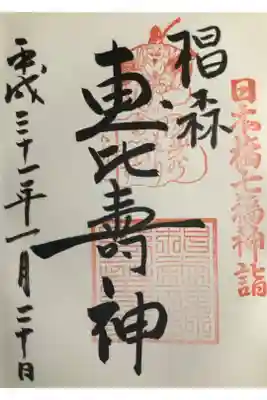 日本橋七福神詣
椙森
恵比壽神
平成三十一年一月二十日